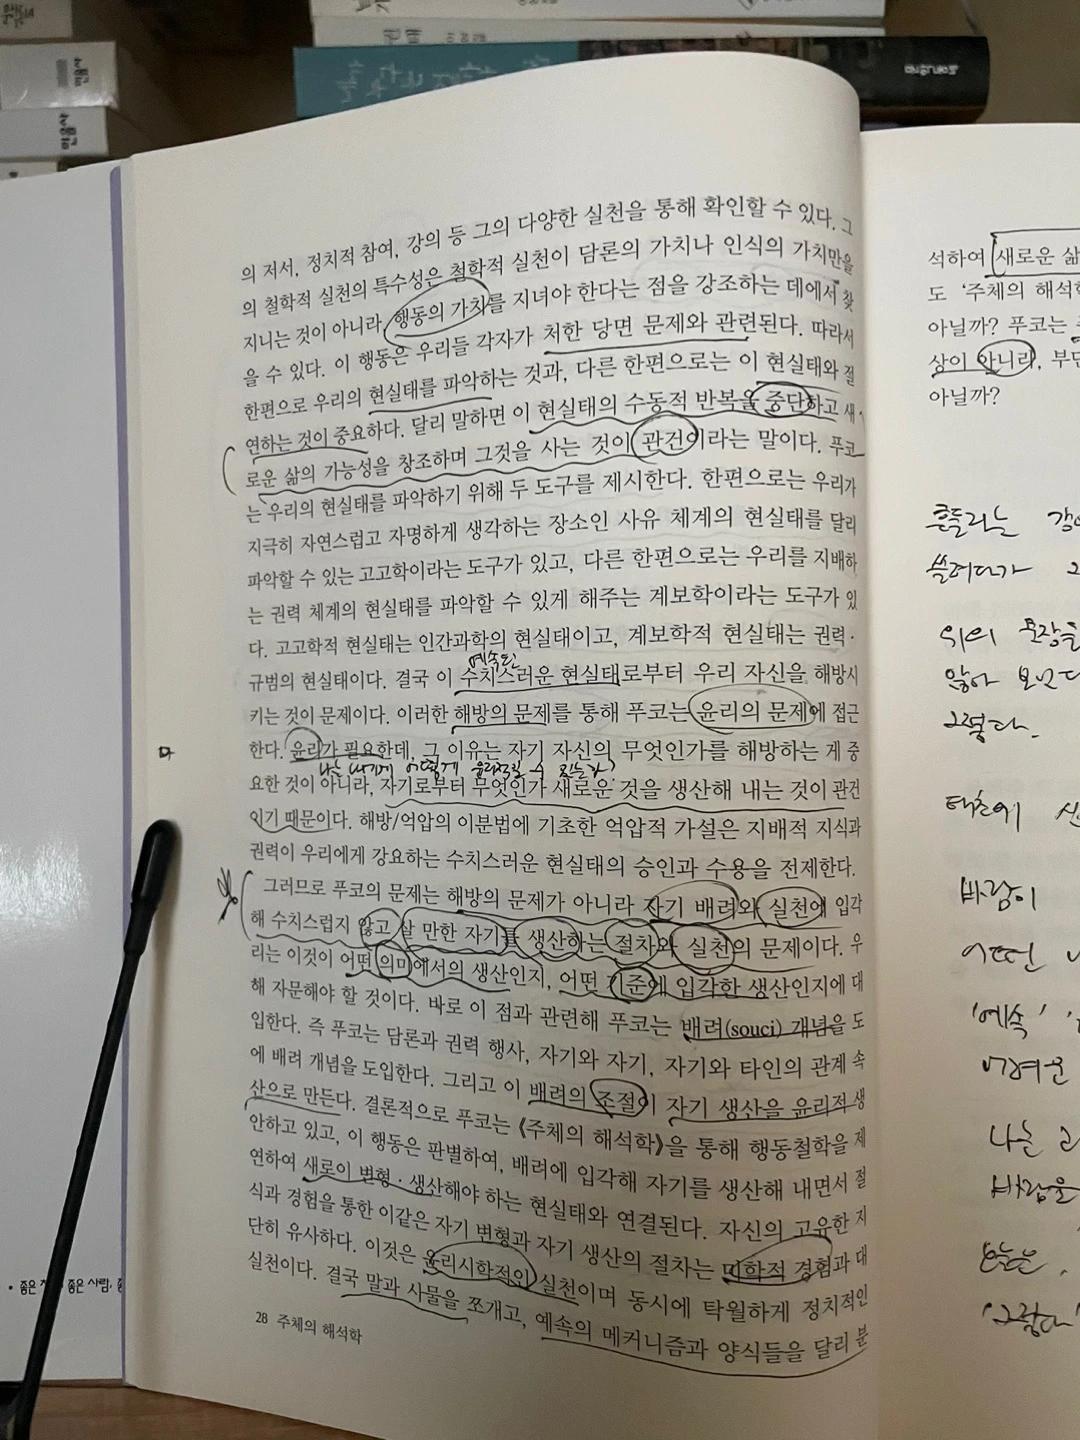 민음사
민음사
의 저서, 정치적 참여, 강의 등 그의 다양한 실천을 통해 확인할 수 있다. 그
의 철학적 실천의 특수성은 철학적 실천이 담론의 가치나 인식의 가치만을
지니는 것이 아니라 행동의 가치를 지녀야 한다는 점을 강조하는 데에서 찾
을 수 있다. 이 행동은 우리들 각자가 처한 당면 문제와 관련된다. 따라서
한편으로 우리의 현실태를 파악하는 것과, 다른 한편으로는 이 현실태와 절
연하는 것이 중요하다. 달리 말하면 이 현실태의 수동적 반복을 중단하고 새
로운 삶의 가능성을 창조하며 그것을 사는 것이 관건이라는 말이다. 푸코
는 우리의 현실태를 파악하기 위해 두 도구를 제시한다. 한편으로는 우리가
지극히 자연스럽고 자명하게 생각하는 장소인 사유 체계의 현실태를 달리
파악할 수 있는 고고학이라는 도구가 있고, 다른 한편으로는 우리를 지배하
는 권력 체계의 현실태를 파악할 수 있게 해주는 계보학이라는 도구가 있
다. 고고학적 현실태는 인간과학의 현실태이고, 계보학적 현실태는 권력·
예속된
규범의 현실태이다. 결국 이 수치스러운 현실태로부터 우리 자신을 해방시
키는 것이 문제이다. 이러한 해방의 문제를 통해 푸코는 윤리의 문제에 접근
한다. 윤리가 필요한데, 그 이유는 자기 자신의 무엇인가를 해방하는 게 중
나는 나에게 어떻게 윤리적일 수 있는가?
요한 것이 아니라, 자기로부터 무엇인가 새로운 것을 생산해 내는 것이 관건
이기 때문이다. 해방/억압의 이분법에 기초한 억압적 가설은 지배적 지식과
권력이 우리에게 강요하는 수치스러운 현실태의 승인과 수용을 전제한다.
그러므로 푸코의 문제는 해방의 문제가 아니라 자기 배려와 실천에 입각
해 수치스럽지 않고 살 만한 자기를 생산하는 절차와 실천의 문제이다. 우
리는 이것이 어떤 의미에서의 생산인지, 어떤 기준에 입각한 생산인지에 대
해 자문해야 할 것이다. 바로 이 점과 관련해 푸코는 배려(souci) 개념을 도
입한다. 즉 푸코는 담론과 권력 행사, 자기와 자기, 자기와 타인의 관계 속
에 배려 개념을 도입한다. 그리고 이 배려의 조절이 자기 생산을 윤리적 생
산으로 만든다. 결론적으로 푸코는 《주체의 해석학》을 통해 행동철학을 제
안하고 있고, 이 행동은 판별하여, 배려에 입각해 자기를 생산해 내면서 절
연하여 새로이 변형·생산해야 하는 현실태와 연결된다. 자신의 고유한 지
식과 경험을 통한 이같은 자기 변형과 자기 생산의 절차는 미학적 경험과 대
단히 유사하다. 이것은 윤리시학적인 실천이며 동시에 탁월하게 정치적인
실천이다. 결국 말과 사물을 쪼개고, 예속의 메커니즘과 양식들을 달리 분
28 주체의 해석학
좋은 좋은 사람,
석하여 새로운 삶
도 '주체의 해석학
아닐까? 푸코는
상이 아니라, 부단
아닐까?
흔들리는
쓸려다가
위의 문장을
않아 보인다
그렇다.
태초에 신
바람이
어떤
'예속'
나는
바람을
오늘은,
'그렇다'